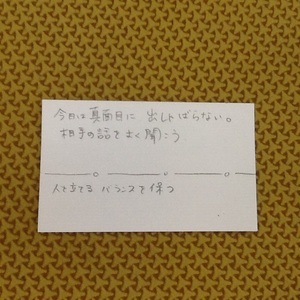 今日は真面目に 出しゃばらない。
相手の話をよく聞こう
人を立てる バランスを保つ